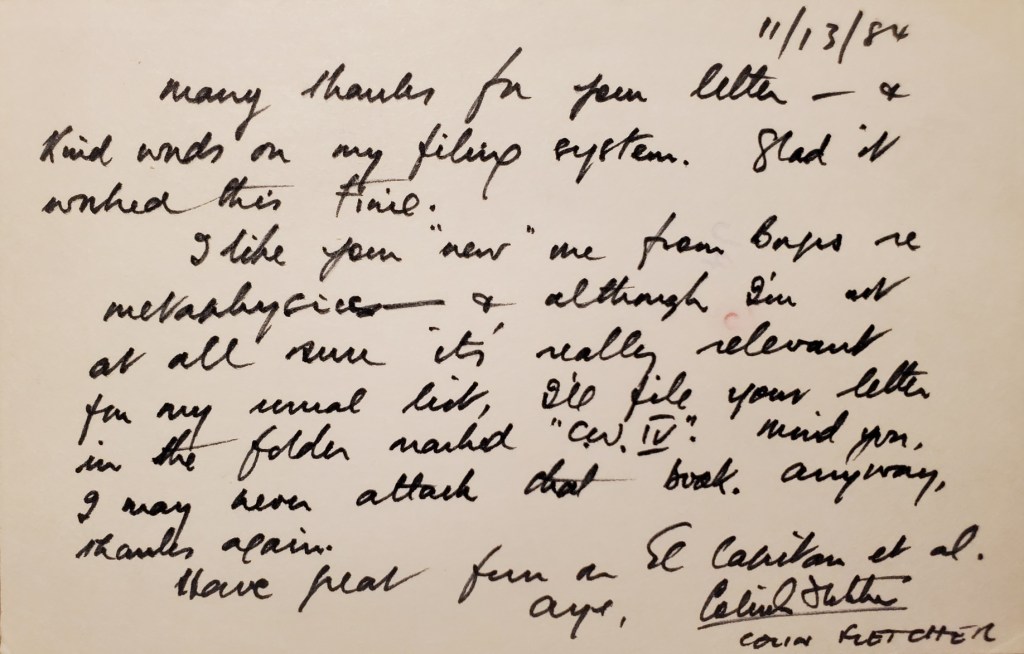 11/13/84
Many thanks for your letter — &
kind words on my filing system. Glad it
worked this time.
I like your "new" one from re
metaphysics — & although I'm not
at all sure it's really relevant
for my usual list, I'll file your letter
in the folder marked "C.W. IV". Mind you,
I may never attack that book. Anyway,
thanks again.
Have great fun on El Capitan et al.
Aye, Colin Fletcher
COLIN FLETCHER